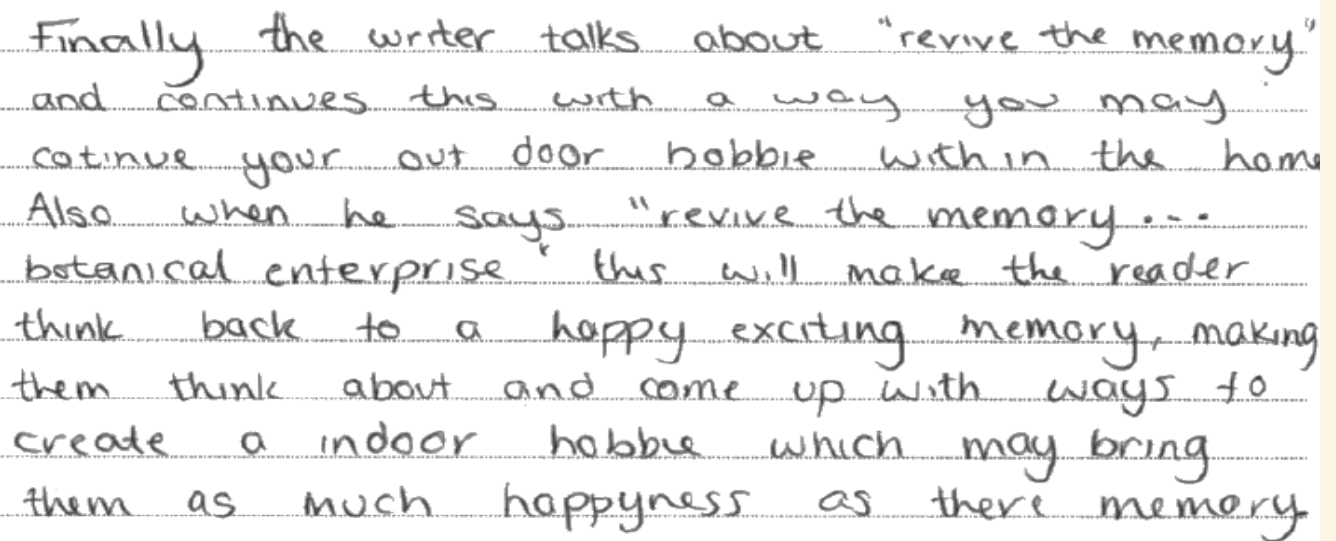 Finally the writer talks about "revive the memory"
and continues this with a way you may
cotinue your out door hobbie with in the home
Also when he says "revive the memory...
botanical enterprise" this will make the reader
think back to a happy exciting memory, making
them think about and come up with ways to
create a indoor hobbie which may bring
them as much happyness as there memory